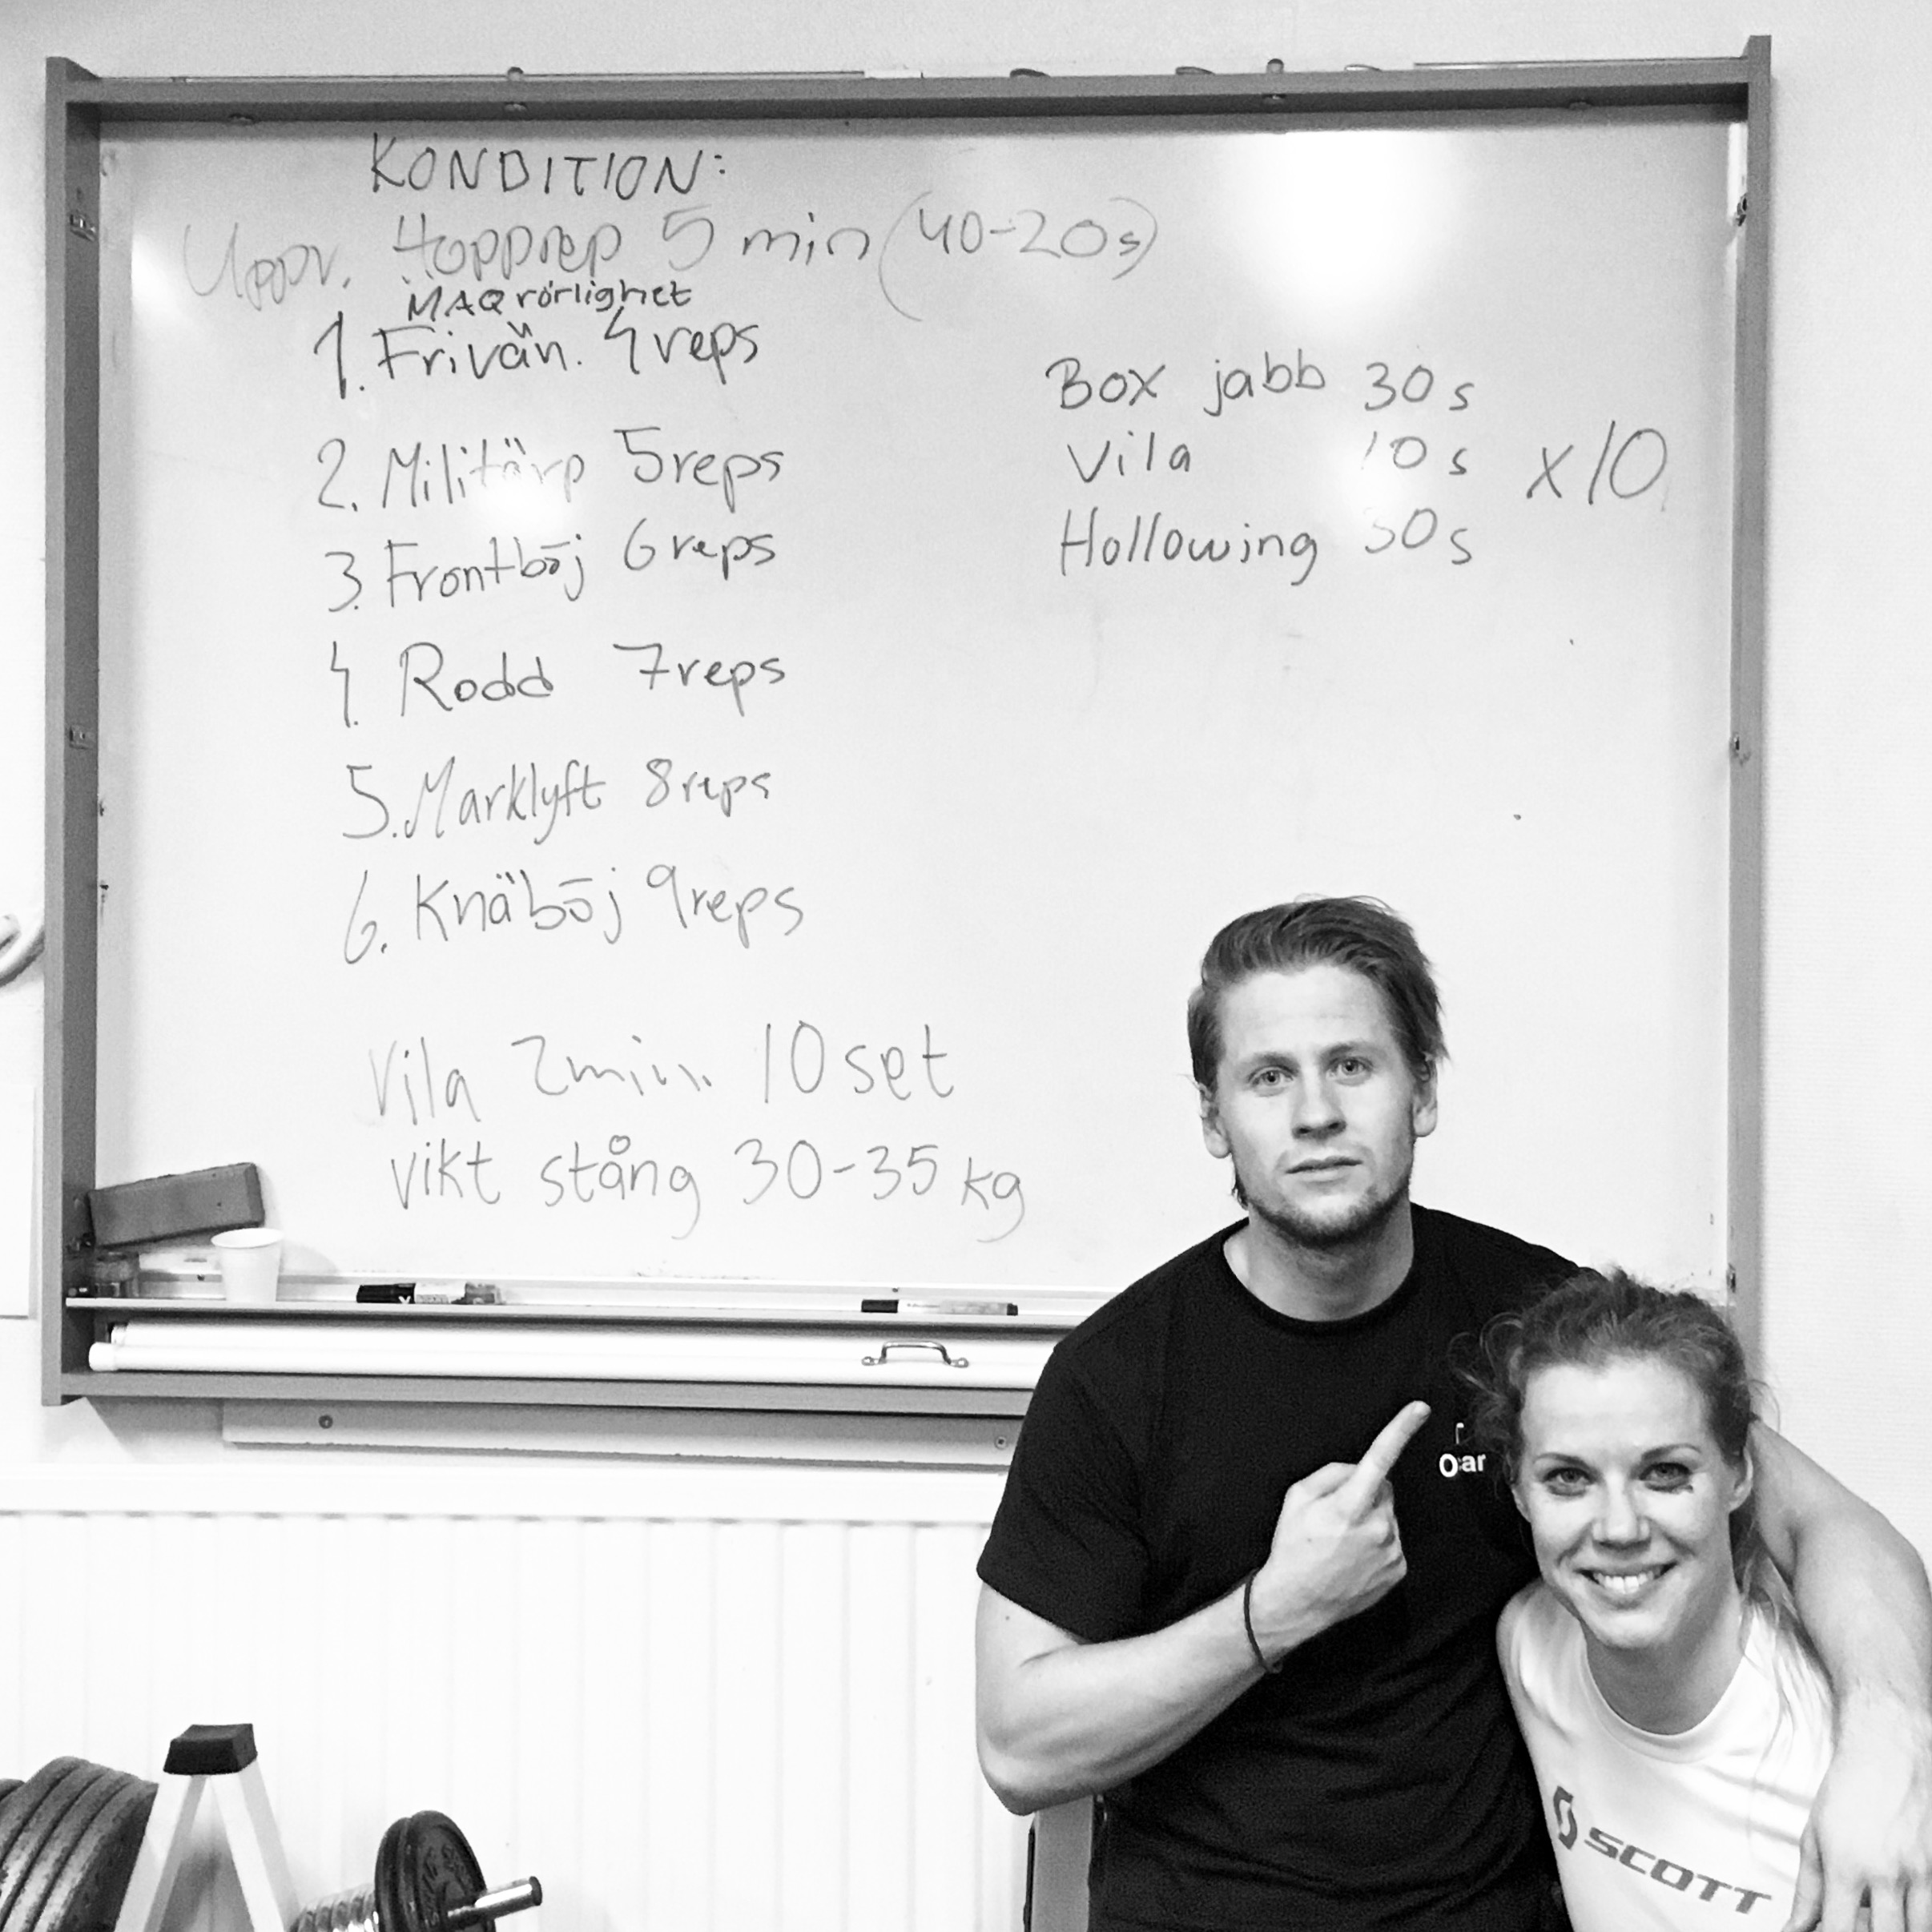 KONDITION:
Uppv. Hopprep 5 min (40-20s)
MAQ rörlighet
1. Frivän. 4 reps
2. Militärp 5 reps
3. Frontböj 6 reps
4. Rodd 7 reps
5. Marklyft 8 reps
6. Knäböj 9 reps
Vila 2 min. 10 set
vikt stång 30-35 kg
Box jabb 30 s
Vila 10 s x10
Hollowing 30 s
SCOTT